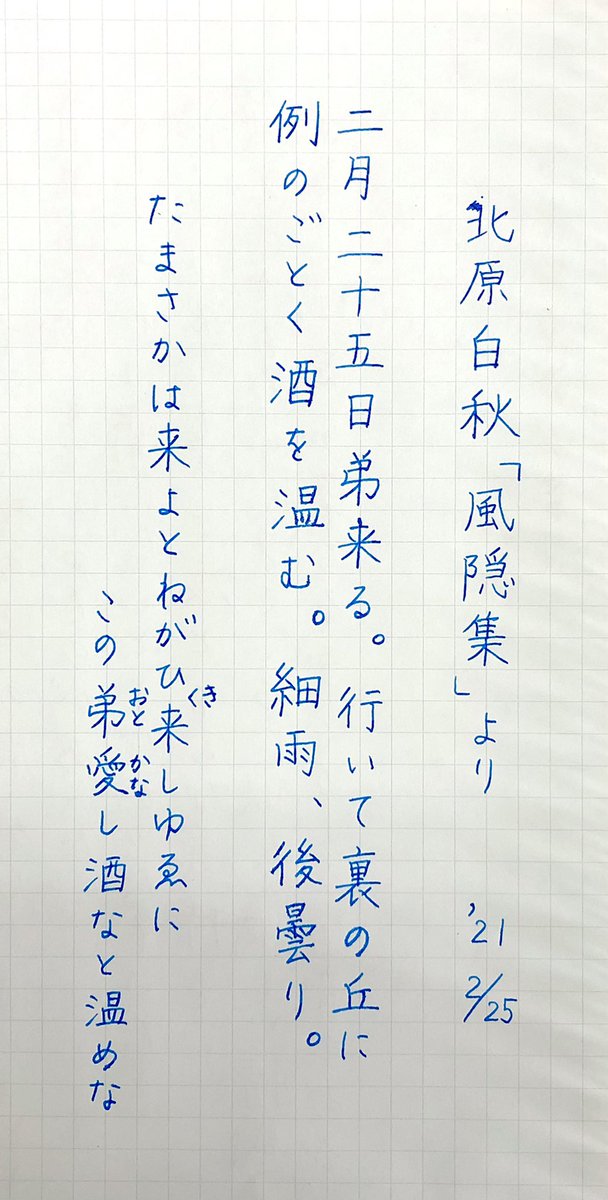 北原白秋「風隠集」より '21 2/25
二月二十五日弟来る。行いて裏の丘に
例のごとく酒を温む。細雨、後曇り。
たまさかは来よとねがひ来しゆゑに
くき
この弟愛し酒なと温めな
おと かな